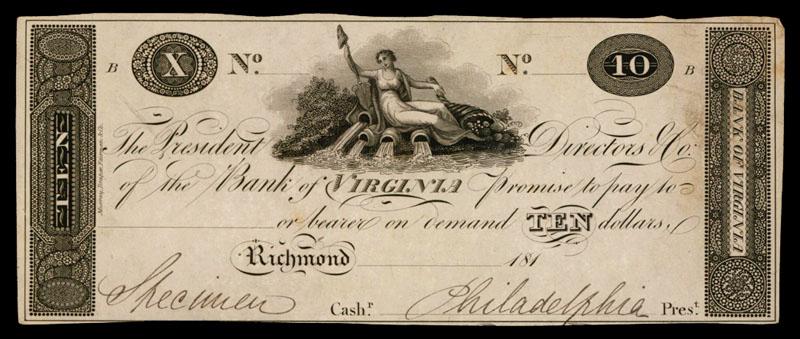 B X No. No. 10 B
TEN
Murray, Draper, Fairman & Co.
The President Directors & Co:
of the Bank of VIRGINIA Promise to pay to
or bearer on demand TEN dollars,
Richmond 181
Specimen Cash.r Philadelphia Pres.t
BANK OF VIRGINIA